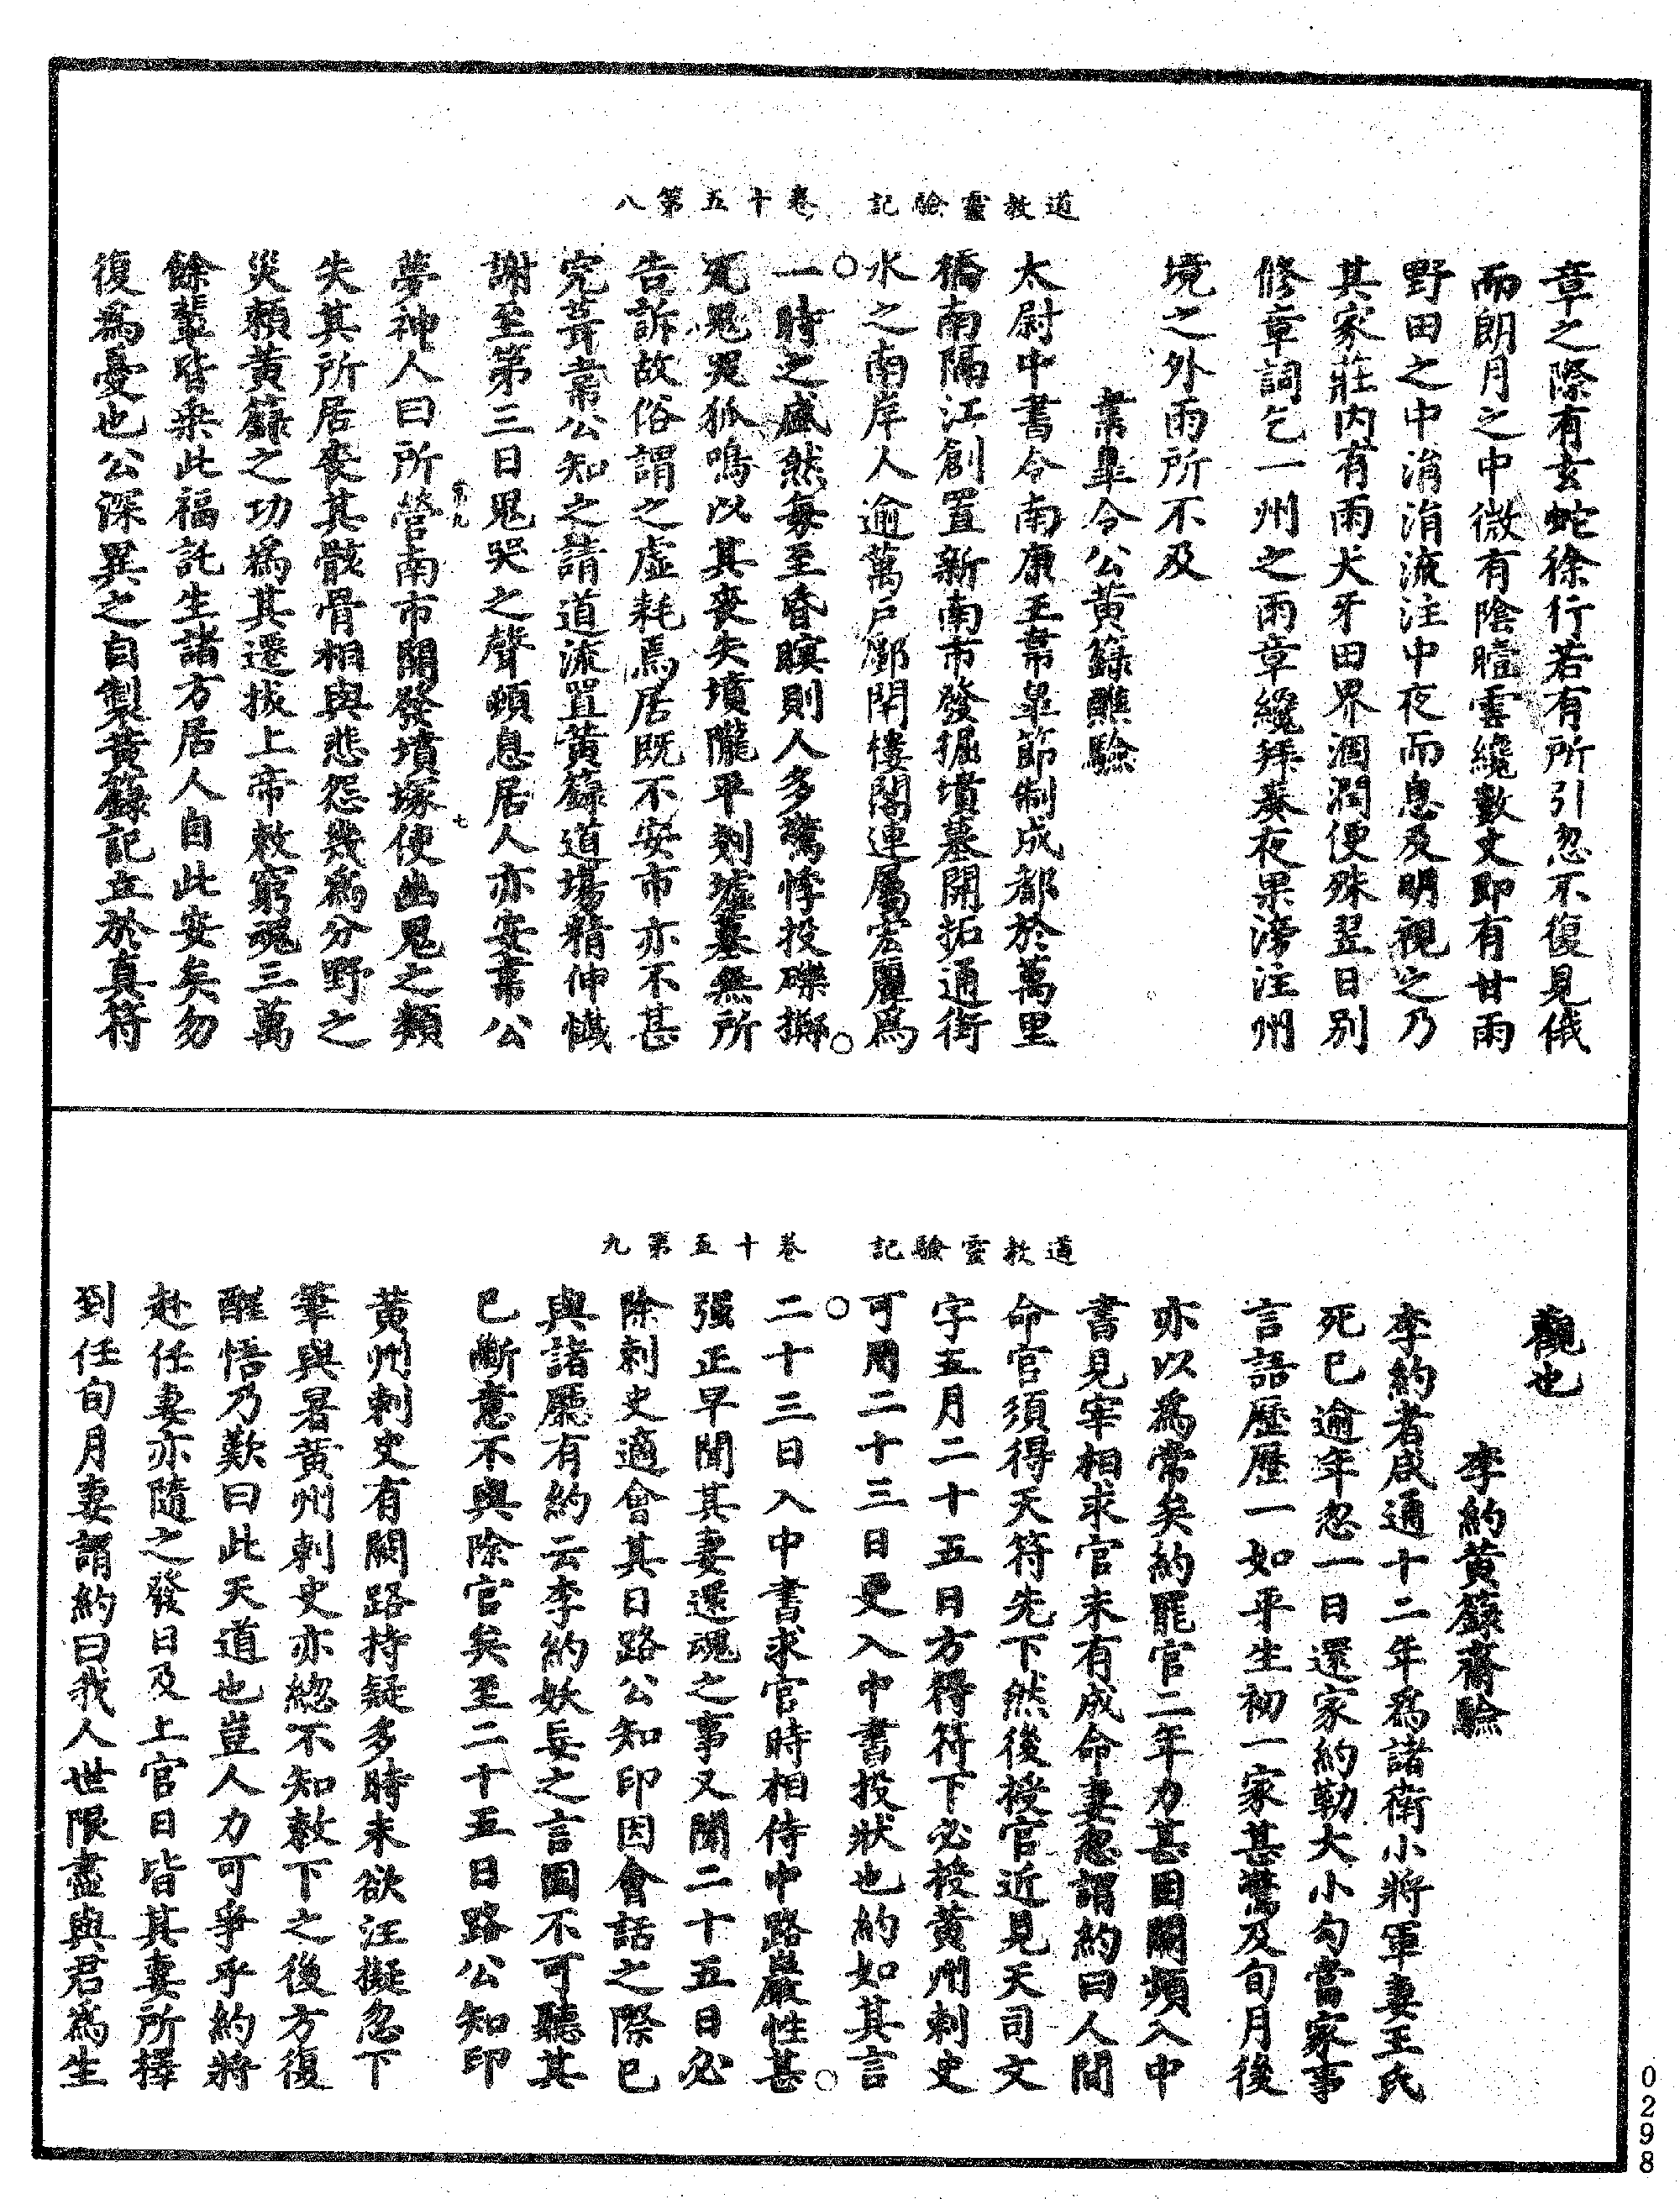 道教靈驗記　卷十五第八
章之際有玄蛇徐行若有所引忽不復見俄
而朗月之中微有陰曀雲纔數丈即有甘雨
野田之中涓涓流注中夜而息及明視之乃
其家莊内有雨犬牙田界涸潤便殊翌日别
修章詞乞一州之雨章纔拜奏夜果滂注州
境之外雨所不及
韋臯令公黄籙醮驗
太尉中書令南康王韋臯節制成都於萬里
橋南隔江創置新南市發掘墳墓開拓通街
水之南岸人逾萬戶鄽閈樓閣連屬宏麗爲
一時之盛然每至昏暝則人多驚悸投礫擲
瓦鬼哭狐鳴以其喪失墳隴平剗墟墓無所
告訴故俗謂之虚耗焉居既不安市亦不甚
完葺韋公知之請道流置黄籙道場精伸懺
謝至第三日鬼哭之聲頓息居人亦安韋公
夢神人曰所營南市開發墳塚使幽鬼之類
失其所居喪其骸骨相與悲怨幾爲分野之
災頼黄籙之功爲其遷拔上帝敕窮魂三萬
餘輩皆乘此福託生諸方居人自此安矣勿
復爲憂也公深異之自製黄籙記立於真符
道教靈驗記　卷十五第九
觀也
李約黄籙齋驗
李約者咸通十二年爲諸衛小將軍妻王氏
死已逾年忽一日還家約勒大小勾當家事
言語歷歷一如平生初一家甚驚及旬月後
亦以爲常矣約罷官二年力甚困闕頻入中
書見宰相求官未有成命妻忽謂約曰人間
命官須得天符先下然後授官近見天司文
字五月二十五日方得符下必授黄州刺史
可用二十三日更入中書投狀也約如其言
二十三日入中書求官時相侍中路巖性甚
强正早聞其妻還魂之事又聞二十五日必
除刺史適會其日路公知印因會話之際已
與諸廳有約云李約妖妄之言固不可聽其
已斷意不與除官矣至二十五日路公知印
黄州刺史有闕路持疑多時未欲注擬忽下
筆與署黄州刺史亦緫不知敕下之後方復
醒悟乃歎曰此天道也豈人力可爭乎約將
赴任妻亦隨之發日及上官日皆其妻所擇
到任旬月妻謂約曰我人世限盡與君爲生
0298